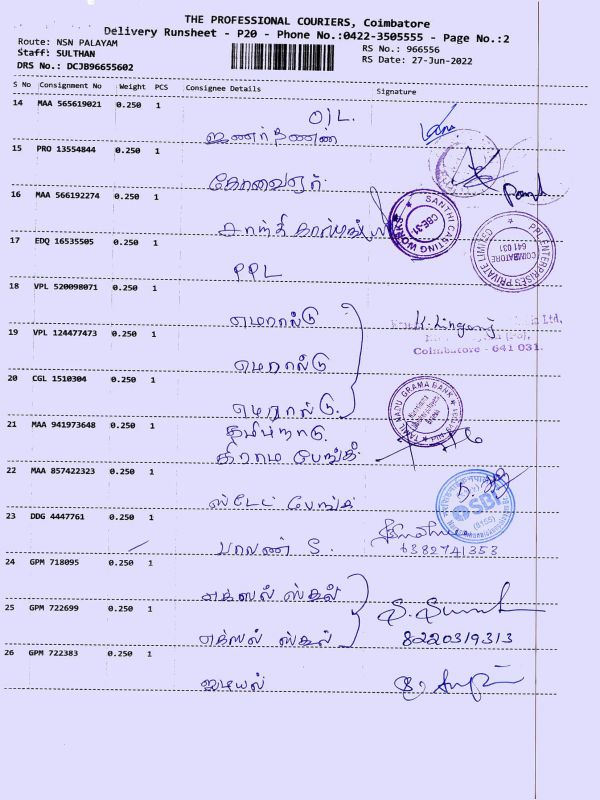 THE PROFESSIONAL COURIERS, Coimbatore
Delivery Runsheet - P20 - Phone No.:0422-3505555 - Page No.:2
Route: NSN PALAYAM
Staff: SULTHAN
DRS No.: DCJB96655602
RS No.: 966556
RS Date: 27-Jun-2022
S No Consignment No Weight PCS Consignee Details Signature
14 MAA 565619021 0.250 1
O/L.
15 PRO 13554844 0.250 1
16 MAA 566192274 0.250 1
SANTHI CASTING WORKS
CBE-31
17 EDQ 16535505 0.250 1
PPL ENTERPRISES PRIVATE LIMITED
COIMBATORE
641 031
PPL
18 VPL 520098071 0.250 1
எமரால்டு
19 VPL 124477473 0.250 1
Coimbatore - 641 031.
எமரால்டு
20 CGL 1510304 0.250 1
எமரால்டு.
21 MAA 941973648 0.250 1
தமிழ்நாடு.
கிராம பேங்க்.
TAMIL NADU GRAMA BANK
22 MAA 857422323 0.250 1
ஸ்டேட் பேங்க்
SBI
23 DDG 4447761 0.250 1
பாலன் S.
6382741353
24 GPM 718095 0.250 1
எக்ஸல் ஸ்கூல்
25 GPM 722699 0.250 1
எக்ஸல் ஸ்கூல்
8220319313
26 GPM 722383 0.250 1